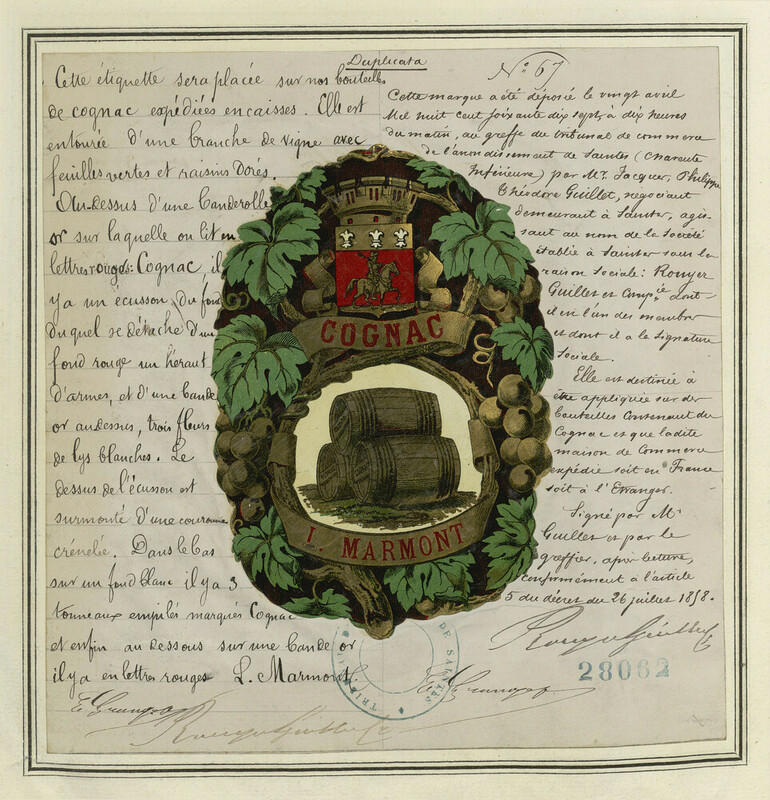 Duplicata
Cette étiquette sera placée sur nos bouteilles
de cognac expédiées en caisses. Elle est
entourée d'une branche de vigne avec
feuilles vertes et raisins dorés.
Au-dessus d'une banderolle
or sur laquelle on lit en
lettres rouges: Cognac, il
y a un écusson, du fond
duquel se détache d'un
fond rouge un héraut
d'armes, et d'une bande
or au dessus, trois fleurs
de lys blanches. Le
dessus de l'écusson est
surmonté d'une couronne
crénelée. Dans le bas
sur un fond blanc il y a 3
tonneaux empilés marqués Cognac
et enfin au dessous sur une bande or
il y a en lettres rouges I. Marmont.
No. 67
Cette marque a été déposée le vingt avril
Mil huit cent soixante dix sept, à dix heures
du matin, au greffe du tribunal de commerce
de l'arrondissement de Saintes (Charente
Inférieure) par Mr. Jacques, Philippe
Théodore Guillet, négociant
demeurant à Saintes, agis-
sant au nom de la Société
établie à Saintes sous la
raison sociale: Rouyer
Guillet et Compie. dont
il est l'un des membres
et dont il a la signature
sociale.
Elle est destinée à
être appliquée sur des
bouteilles contenant du
Cognac et que ladite
maison de Commerce
expédie soit en France
soit à l'Etranger.
Signé par Mr
Guillet et par le
greffier, après lecture,
conformément à l'article
5 du décret du 26 juillet 1858.
COGNAC
I. MARMONT
DE SAINTES
28062